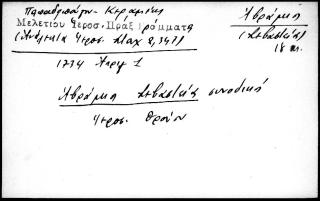 Παπαδοπούλου-Κεραμέως
Μελετίου Ἱεροσ. Πράξ Γράμματα
(Ἀνάλεκτα Ἱεροσ. Σταχ 2, 347)
Ἀβράμιος
(Σεβαστείας)
18 αι.
1734 Απρ 1
Ἀβράμιος Σεβαστείας συνοδικός
Ἱεροσ. θρόνου